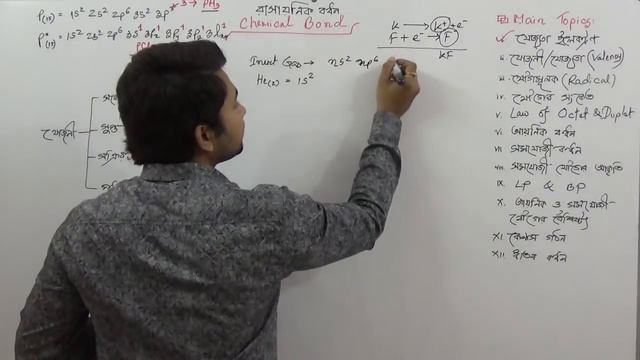 P(15) = 1s² 2s² 2p⁶ 3s² 3p³ → 3 → PH₃
P*(15) = 1s² 2s² 2p⁶ 3s¹
রাসায়নিক বন্ধন
Chemical Bond
K → K⁺ + e⁻
F + e⁻ → F⁻
KF
Inert Gas → ns² np⁶
He(2) = 1s²
যোজনী
সুপ্ত
Main Topics:
i. যোজ্যতা ইলেকট্রন
ii. যোজনী/যোজ্যতা (Valency)
iii. যৌগমূলক (Radical)
iv. যৌগের সংকেত
v. Law of Octet & Duplet
vi. আয়নিক বন্ধন
vii. সমযোজী বন্ধন
viii. সমযোজী যৌগের আকৃতি
ix. LP & BP
x. আয়নিক ও সমযোজী যৌগের বৈশিষ্ট্য
xi. কেলাস গঠন
xii. ধাতব বন্ধন